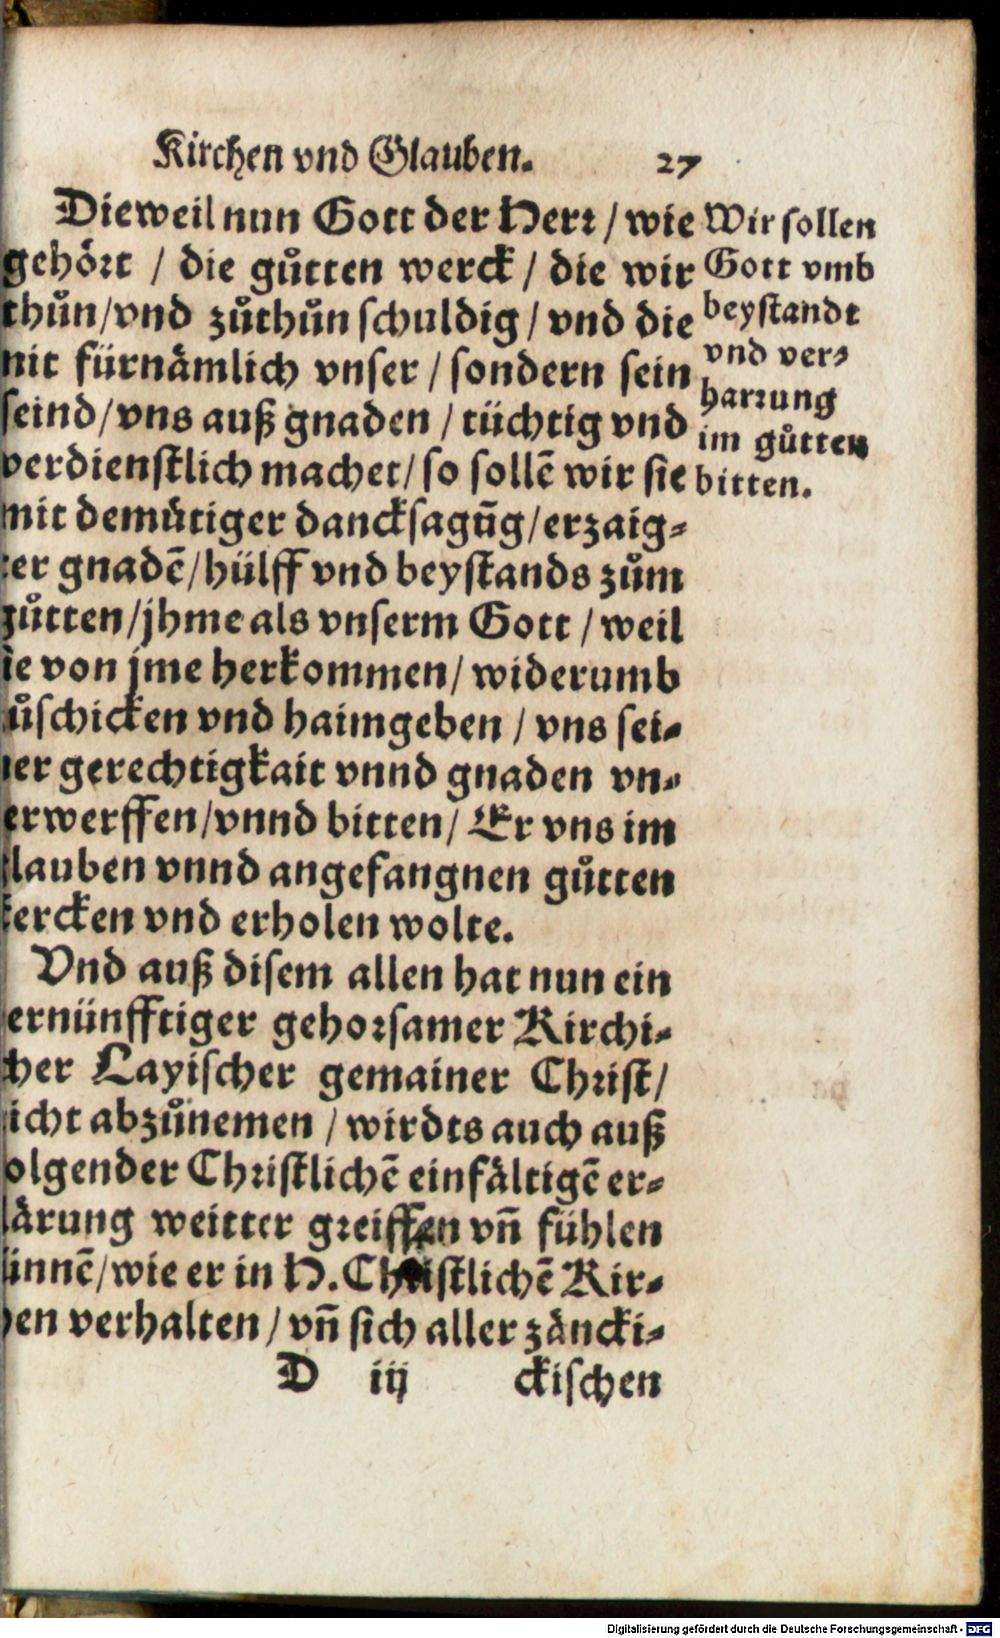 Kirchen vnd Glauben. 27
Dieweil nun Gott der Herr / wie
gehört / die gůtten werck / die wir
thůn / vnd zůthůn schuldig / vnd die
nit fürnämlich vnser / sondern sein
seind / vns auß gnaden / tüchtig vnd
verdienstlich machet / so sollẽ wir sie
mit demütiger dancksagũg / erzaig⸗
er gnadẽ / hülff vnd beystands zům
gůtten / jhme als vnserm Gott / weil
ie von jme herkommen / widerumb
ůschicken vnd haimgeben / vns sei⸗
er gerechtigkait vnnd gnaden vn⸗
erwerffen / vnnd bitten / Er vns im
lauben vnnd angefangnen gůtten
ercken vnd erholen wolte.
Vnd auß disem allen hat nun ein
ernünfftiger gehorsamer Kirchi⸗
her Layischer gemainer Christ /
icht abzůnemen / wirdts auch auß
olgender Christlichẽ einfältigẽ er⸗
lärung weitter greiffen vñ fühlen
innẽ / wie er in H. Christlichẽ Kir⸗
en verhalten / vñ sich aller zäncki⸗
D iij ckischen
Wir sollen
Gott vmb
beystandt
vnd ver⸗
harrung
im gůtten
bitten.
Digitalisierung gefördert durch die Deutsche Forschungsgemeinschaft - DFG